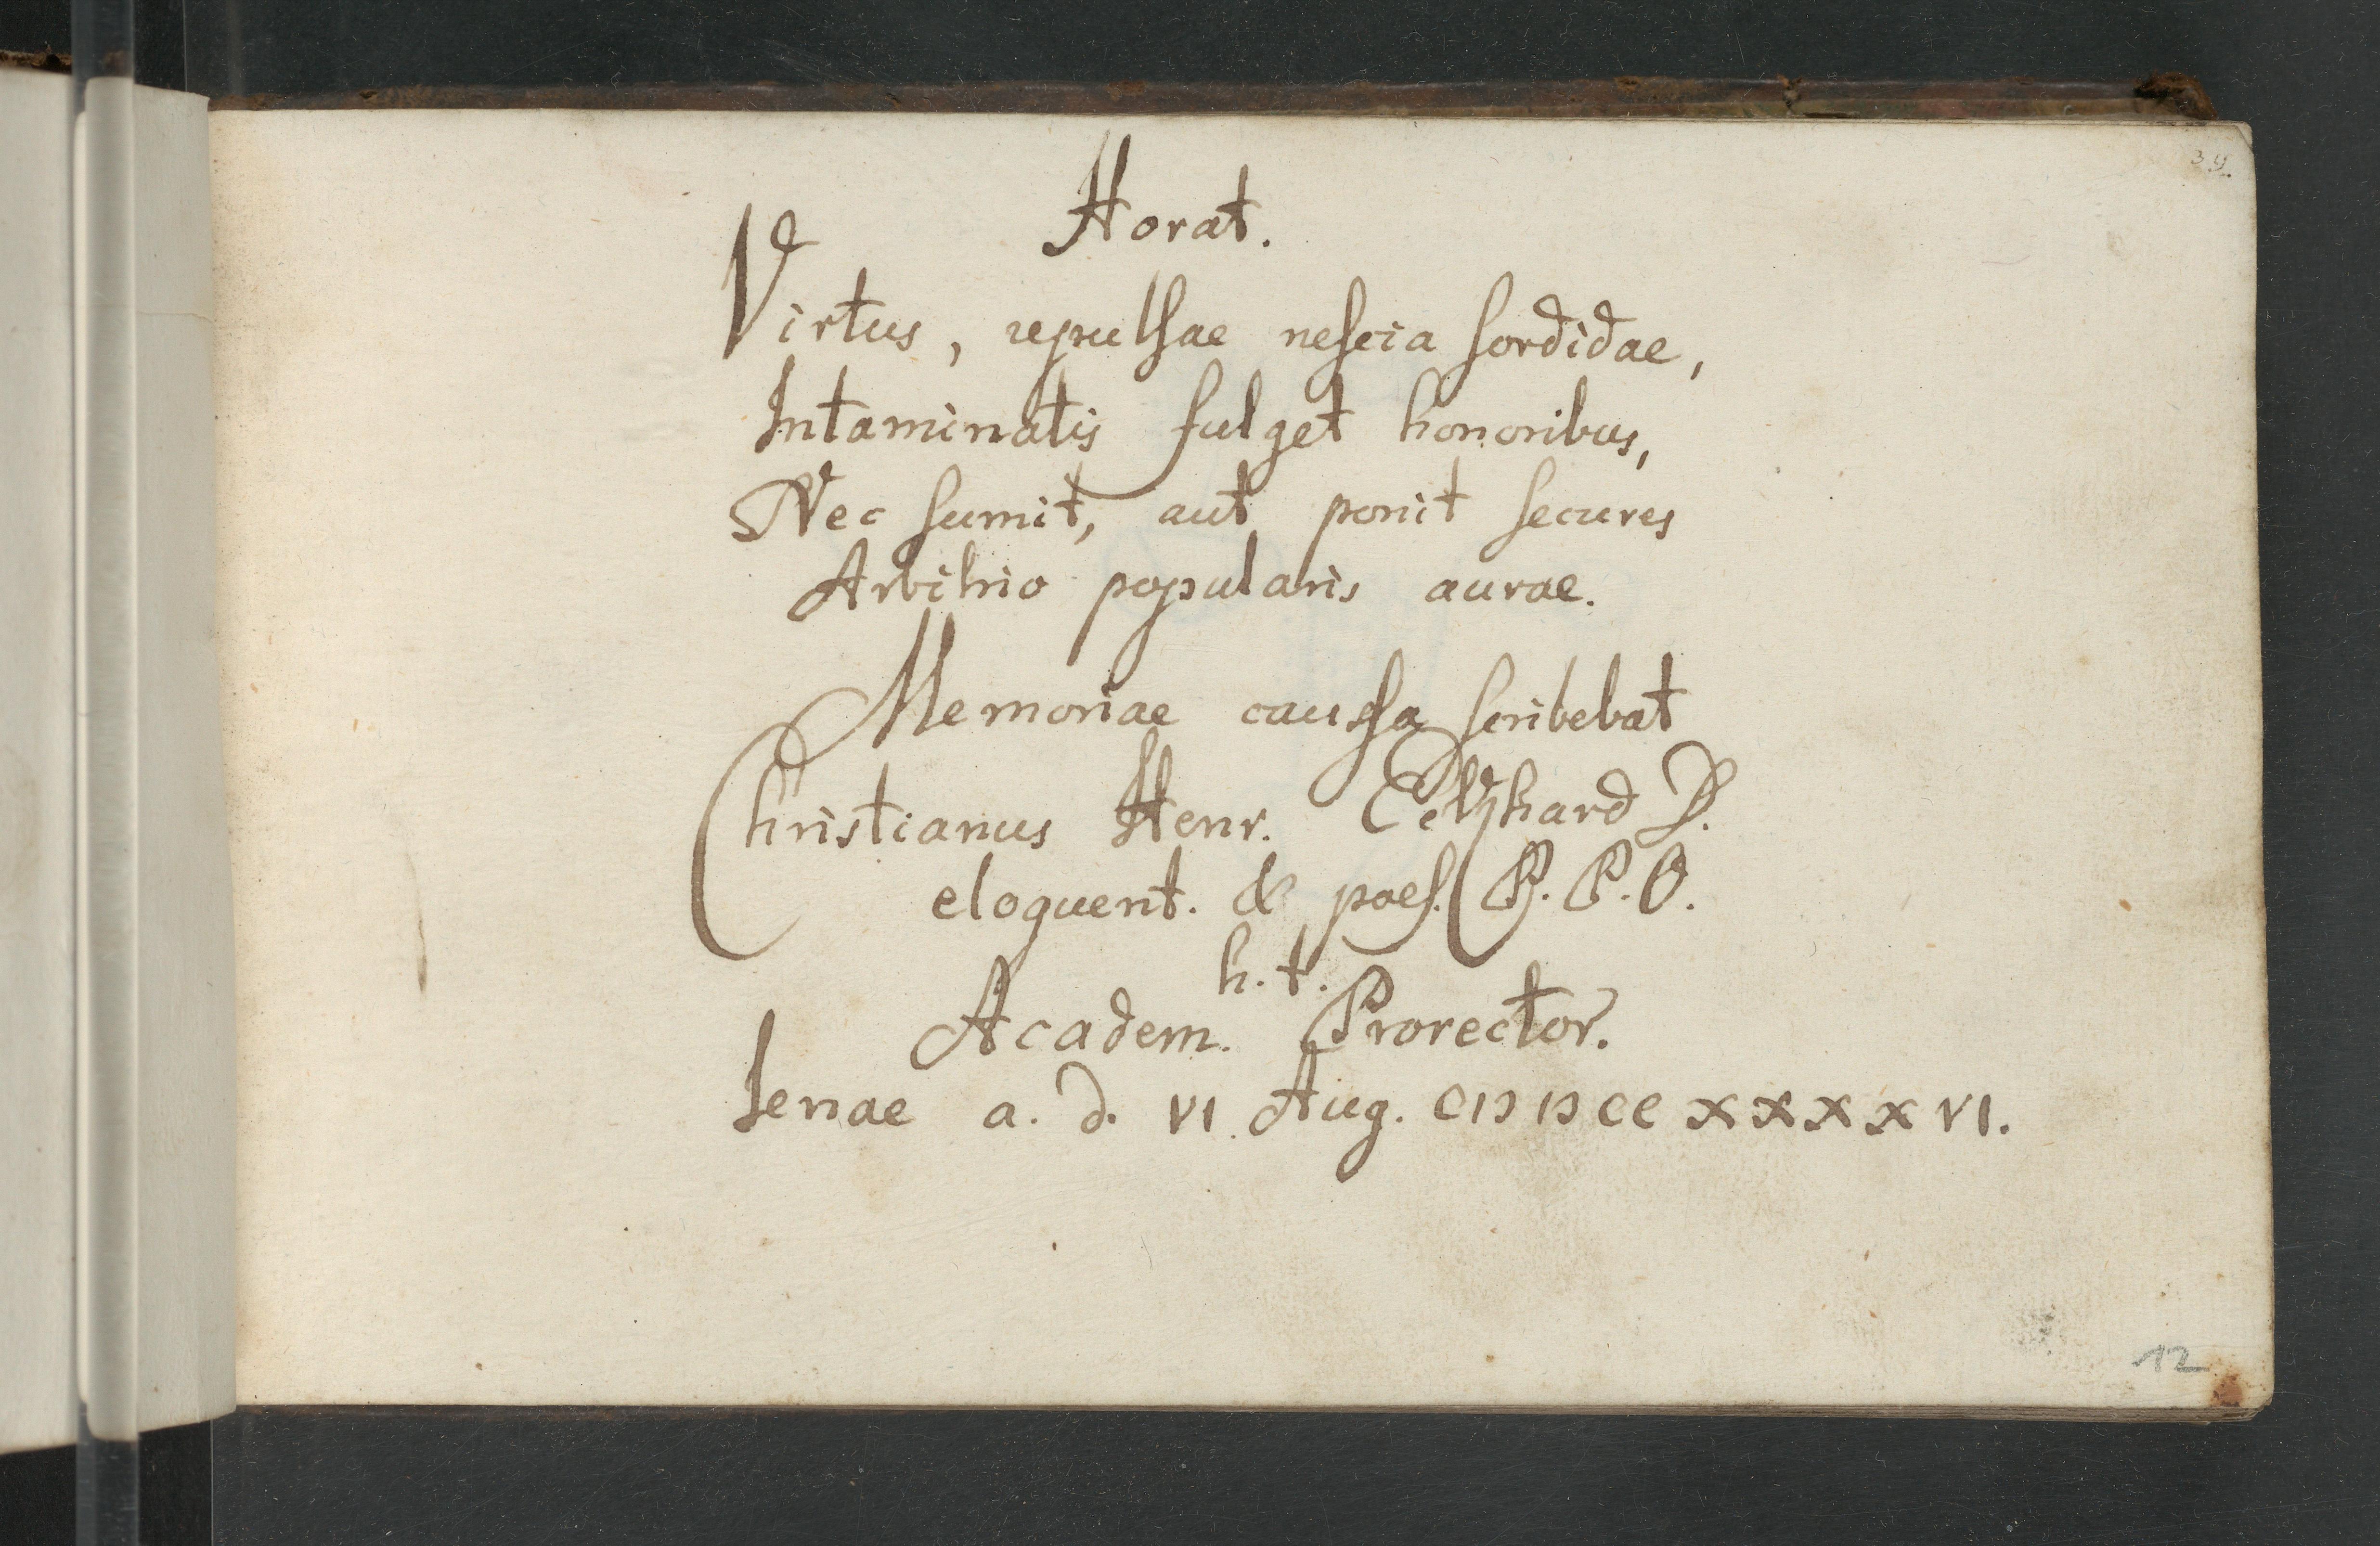 39.
Horat.
Virtus, repulsae nescia sordidae,
Intaminatis fulget honoribus,
Nec sumit, aut ponit secures
Arbitrio popularis aurae.
Memoriae caussa scribebat
Christianus Henr. Eckhard D.
eloquent. & poes. P. P. O.
h. t.
Academ. Prorector.
Ienae a. d. VI. Aug. CIↃ IↃ CC XXXX VI.
12